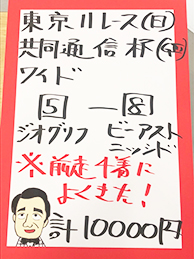 東京11レース(日)
共同通信杯(GⅢ)
ワイド
5 ー 8
ジオグリフ ビーアスト
ニッシド
※前走1着に
よくきた!
計10000円